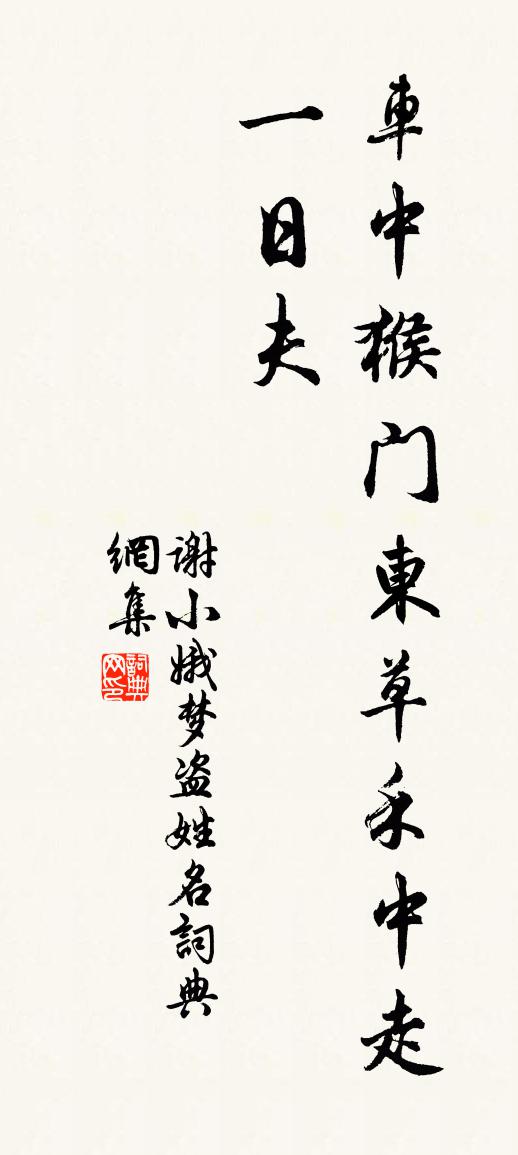 車中猴門東草禾中走
一日夫
谢小娥梦盗姓名詞典
網集
詞典网印